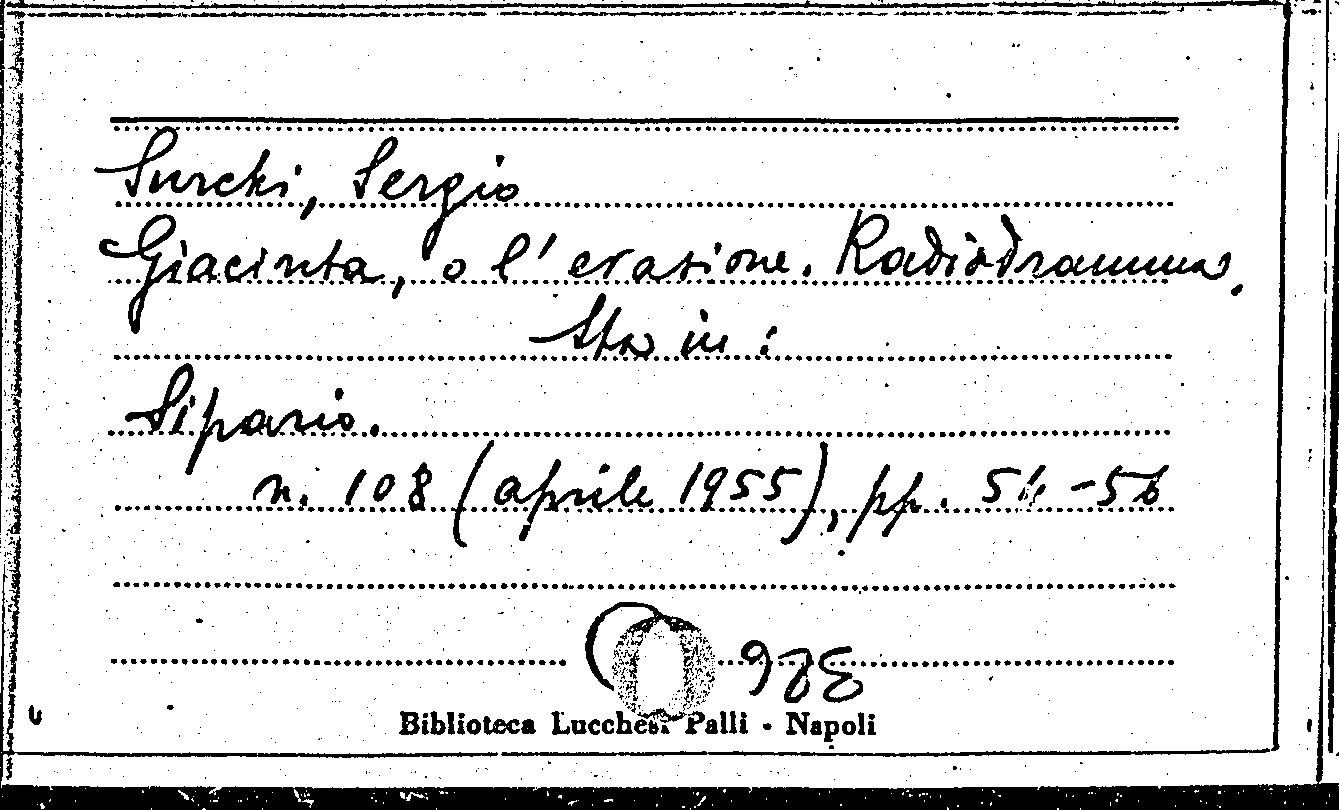 Surchi, Sergio
Giacinta, o l'evasione. Radiodramma.
Sta in:
Sipario.
n. 108 (aprile 1955), pp. 54-56
Biblioteca Lucchesi Palli - Napoli